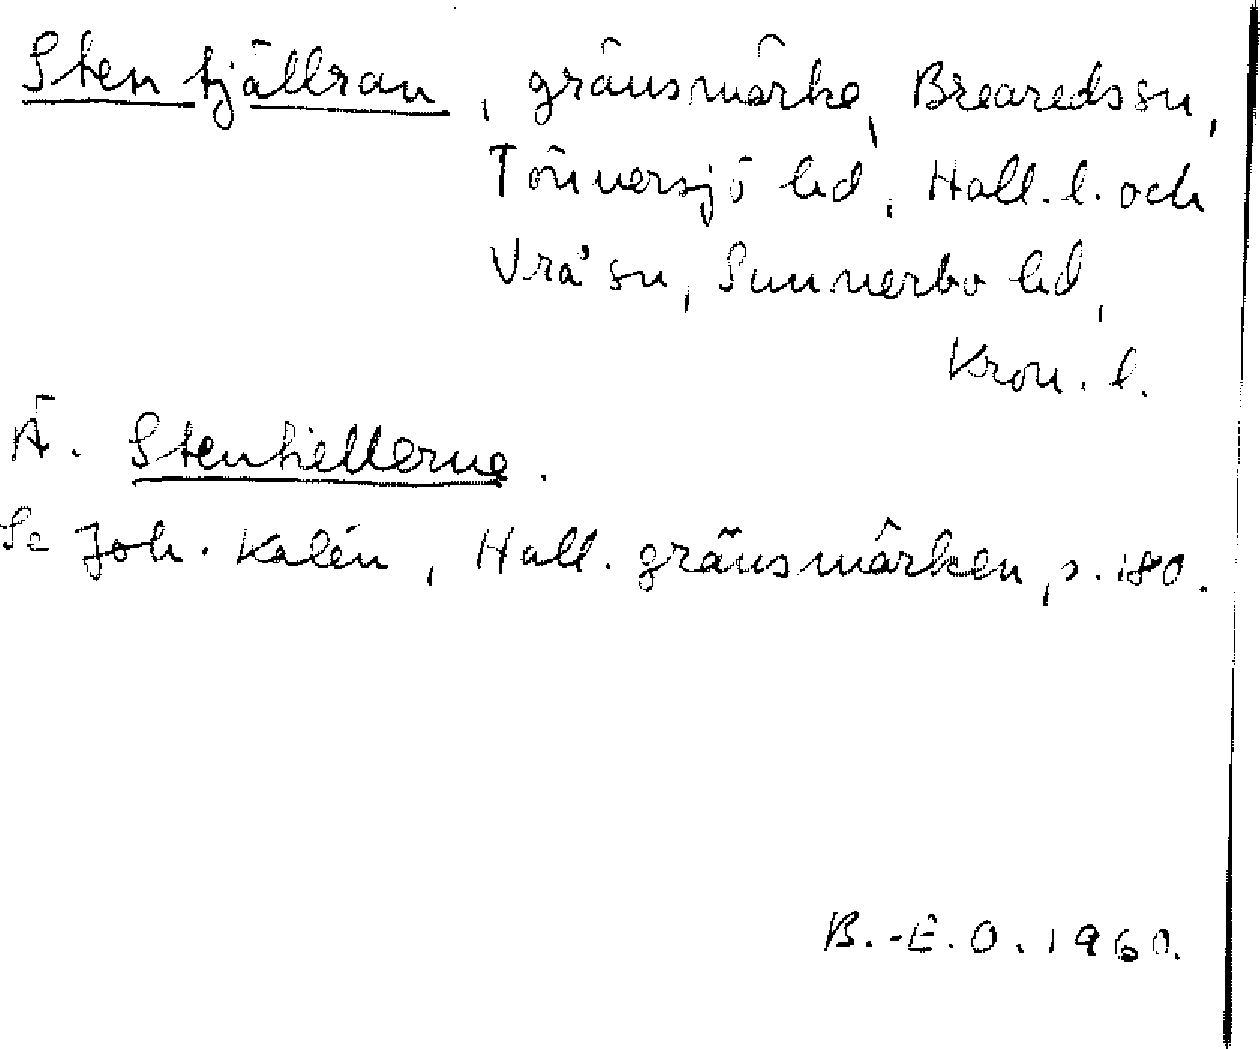 Stentjällran, gränsmärke, Breareds sn,
Tönnersjö hd, Hall. l. och
Vrå sn, Sunnerbo hd,
Kron. l.
Ä. Stenkiellerne.
Se Joh. Kalén, Hall. gränsmärken, s. 180.
B.-E.O. 1960.